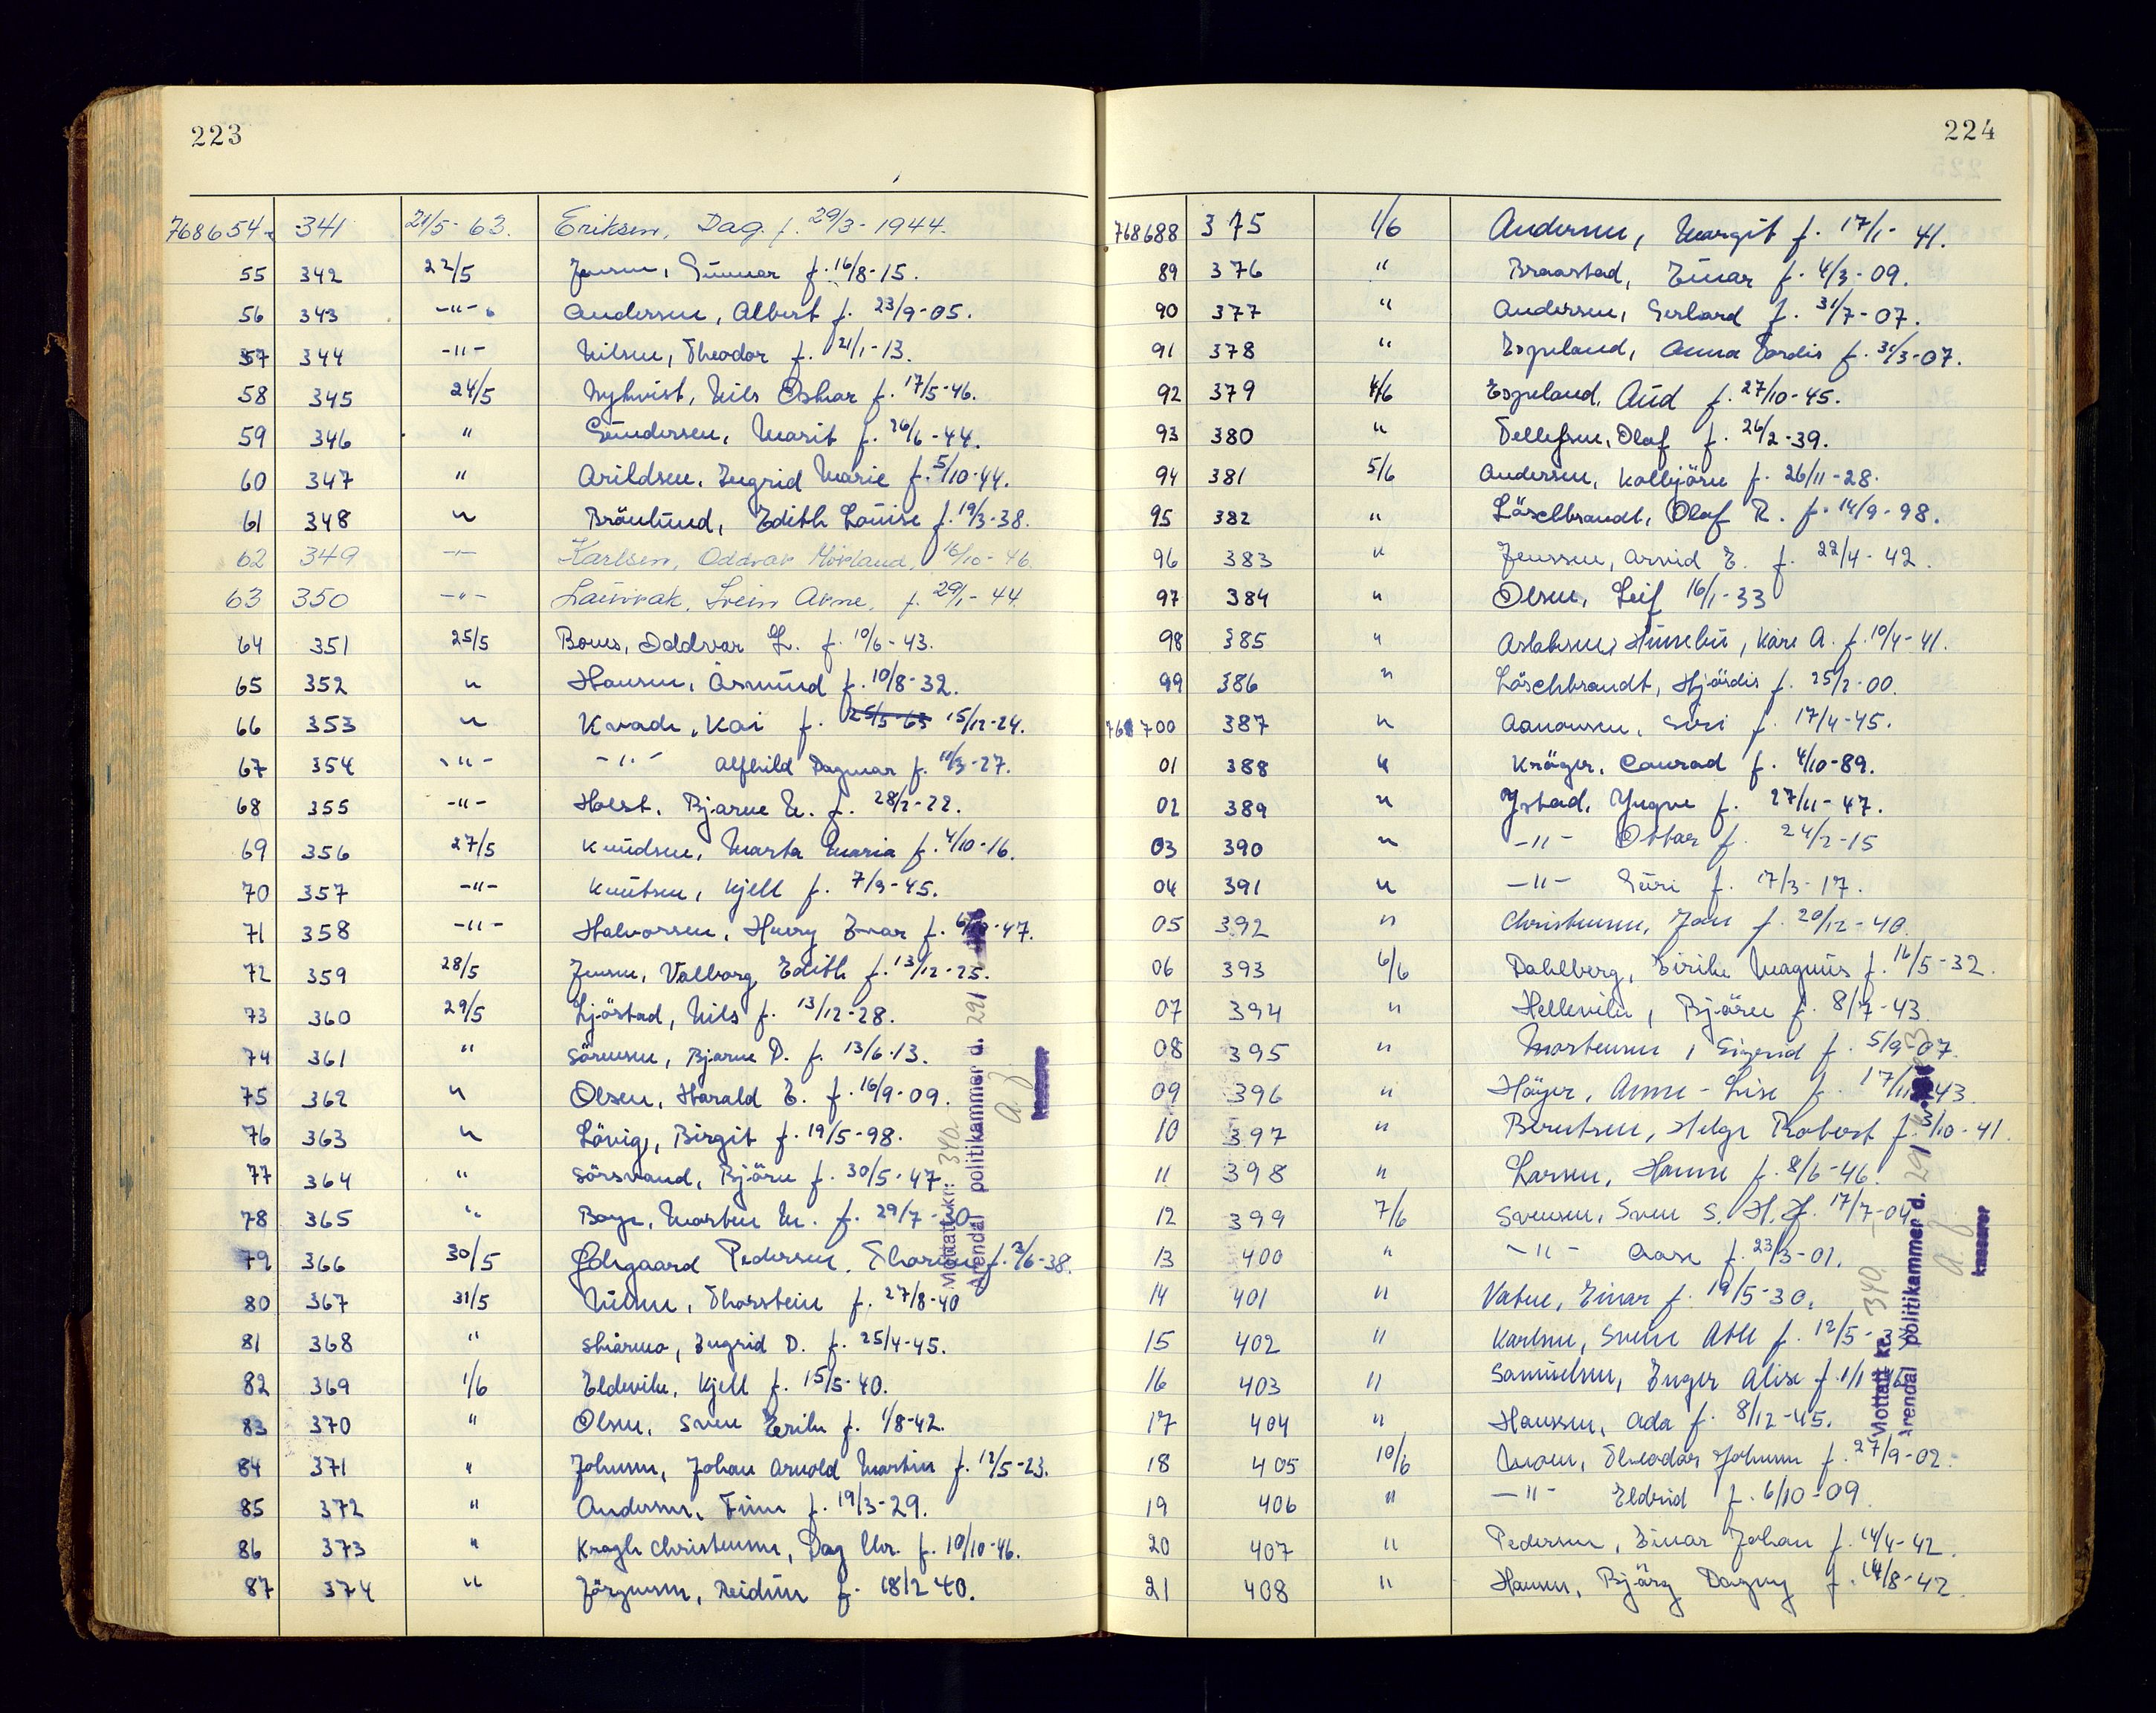 223
768654 341 21/5-63. Eriksen, Dag. f. 29/3-1944.
55 342 22/5 Jensen, Gunnar f. 16/8-15.
56 343 -"- Andersen, Albert f. 23/9-05.
57 344 -"- Nilsen, Theodor f. 21/1-13.
58 345 24/5 Nykvist, Nils Oskar f. 17/5-46.
59 346 " Gundersen, Marit f. 26/6-44.
60 347 " Arildsen, Ingrid Marie f. 5/10-44.
61 348 " Brönlund, Edith Louise f. 19/3-38.
62 349 -"- Karlsen, Oddvar Mörland, 16/10-46.
63 350 -"- Svein Arne, f. 29/1-44
64 351 25/5 Boues, Oddvar L. f. 10/6-43.
65 352 " Hansen, Åsmund f. 10/8-32.
66 353 " Kvade, Kai f. 25/5-63 15/12-24.
67 354 -"- -"- Alfhild Dagmar f. 11/3-27.
68 355 -"- Holst, Bjarne N. f. 28/2-22.
69 356 27/5 Knudsen, Marta Maria f. 4/10-16.
70 357 -"- Knutsen, Kjell f. 7/9-45.
71 358 -"- Halvorsen, Henry Ivar f. -47.
72 359 28/5 Jensen, Valborg Edith f. 13/12-25.
73 360 29/5 Ljöstad, Nils f. 13/12-28.
74 361 " Sörensen, Bjarne D. f. 13/6-13.
75 362 " Olsen, Harald E. f. 16/9-09.
76 363 " Lövig, Birgit f. 19/5-98.
77 364 " Sörsvand, Björn f. 30/5-47
78 365 " Boye, Morten M. f. 29/7-
79 366 30/5 Ödegaard Pedersen, f. 3/6-38.
80 367 31/5 Nilsen, Thorstein f. 27/8-40
81 368 " Skiarmo, Ingrid D. f. 25/4-45.
82 369 1/6 Eldevik, Kjell f. 15/5-40.
83 370 " Olsen, Sven Eerik f. 1/8-42.
84 371 " Johnsen, Johan Arnold Martin f. 12/5-23.
85 372 " Andersen, Finn f. 19/3-29.
86 373 " Kragh Christensen, Dag Chr. f. 10/10-46.
87 374 " Jörgensen, Reidun f. 18/2 40.
Mottatt kr. 340.
Arendal politikammer d. 29/
a. f
kasserer
224
768688 375 1/6 Andersen, Margit f. 17/1-41.
89 376 " Braastad, Einar f. 4/3-09.
90 377 " Andersen, Gerhard f. 31/7-07.
91 378 " Espeland, Anna Tordis f. 31/3-07.
92 379 4/6 Espeland, Aud f. 27/10-45.
93 380 " Tellefsen, Olaf f. 26/2-39.
94 381 5/6 Andersen, Kolbjörn f. 26/11-28.
95 382 " Löschbrandt, Olaf R. f. 14/9-98.
96 383 " Jenssen, Arvid E. f. 22/4-42.
97 384 " Olsen, Leif 16/1-33
98 385 " Aslaksen, Kåre A. f. 10/4-41.
99 386 " Löschbrandt, Hjördis f. 25/2-00.
768700 387 " Aanonsen, Siri f. 17/4-45.
01 388 " Kröger, Conrad f. 4/10-89.
02 389 " Ystad, Yngve f. 27/11-47.
03 390 " -"- Ottar f. 24/2-15
04 391 " -"- Guri f. 17/3-17.
05 392 " Christensen, Jan f. 20/12-40.
06 393 6/6 Dahlberg, Eirik Magnus f. 16/5-32.
07 394 " Hellevik, Björn f. 8/7-43.
08 395 " Mortensen, Sigurd f. 5/9-07.
09 396 " Höyer, Anne-Lise f. 17/11-43.
10 397 " Berntsen, Helge Robert f. 3/10-41.
11 398 " Larsen, Hanne f. 8/6-46.
12 399 7/6 Svensen, Sven S. H. f. 17/7-04.
13 400 " -"- Aase f. 23/3-01.
14 401 " Vatne, Einar f. 19/5-30.
15 402 " Karlsen, Svein Atle f. 12/5-
16 403 " Samuelsen, Inger Alise f. 1/1
17 404 " Hanssen, Ada f. 8/12-45.
18 405 10/6 Theodor Johnsen f. 27/9-02.
19 406 " -"- Eldrid f. 6/10-09.
20 407 " Pedersen, Einar Johan f. 14/4-42.
21 408 " Hansen, Bjørg Dagny f. 14/8-42.
Mottatt kr. 340.
Arendal politikammer d. 29/
a. f
kasserer